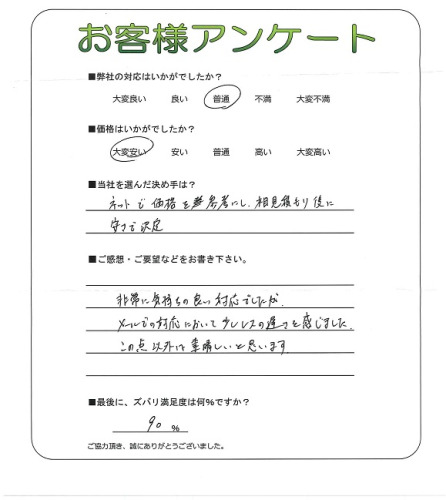 お客様アンケート
■弊社の対応はいかがでしたか?
大変良い 良い 普通 不満 大変不満
■価格はいかがでしたか?
大変安い 安い 普通 高い 大変高い
■当社を選んだ決め手は?
ネットで価格を参考にし、相見積もり後に
決定
■ご感想・ご要望などをお書き下さい。
非常に気持ちの良い対応でしたが、
メールでの対応において少しレスの遅さを感じました。
この点以外は素晴しいと思います。
■最後に、ズバリ満足度は何%ですか?
90 %
ご協力頂き、誠にありがとうございました。